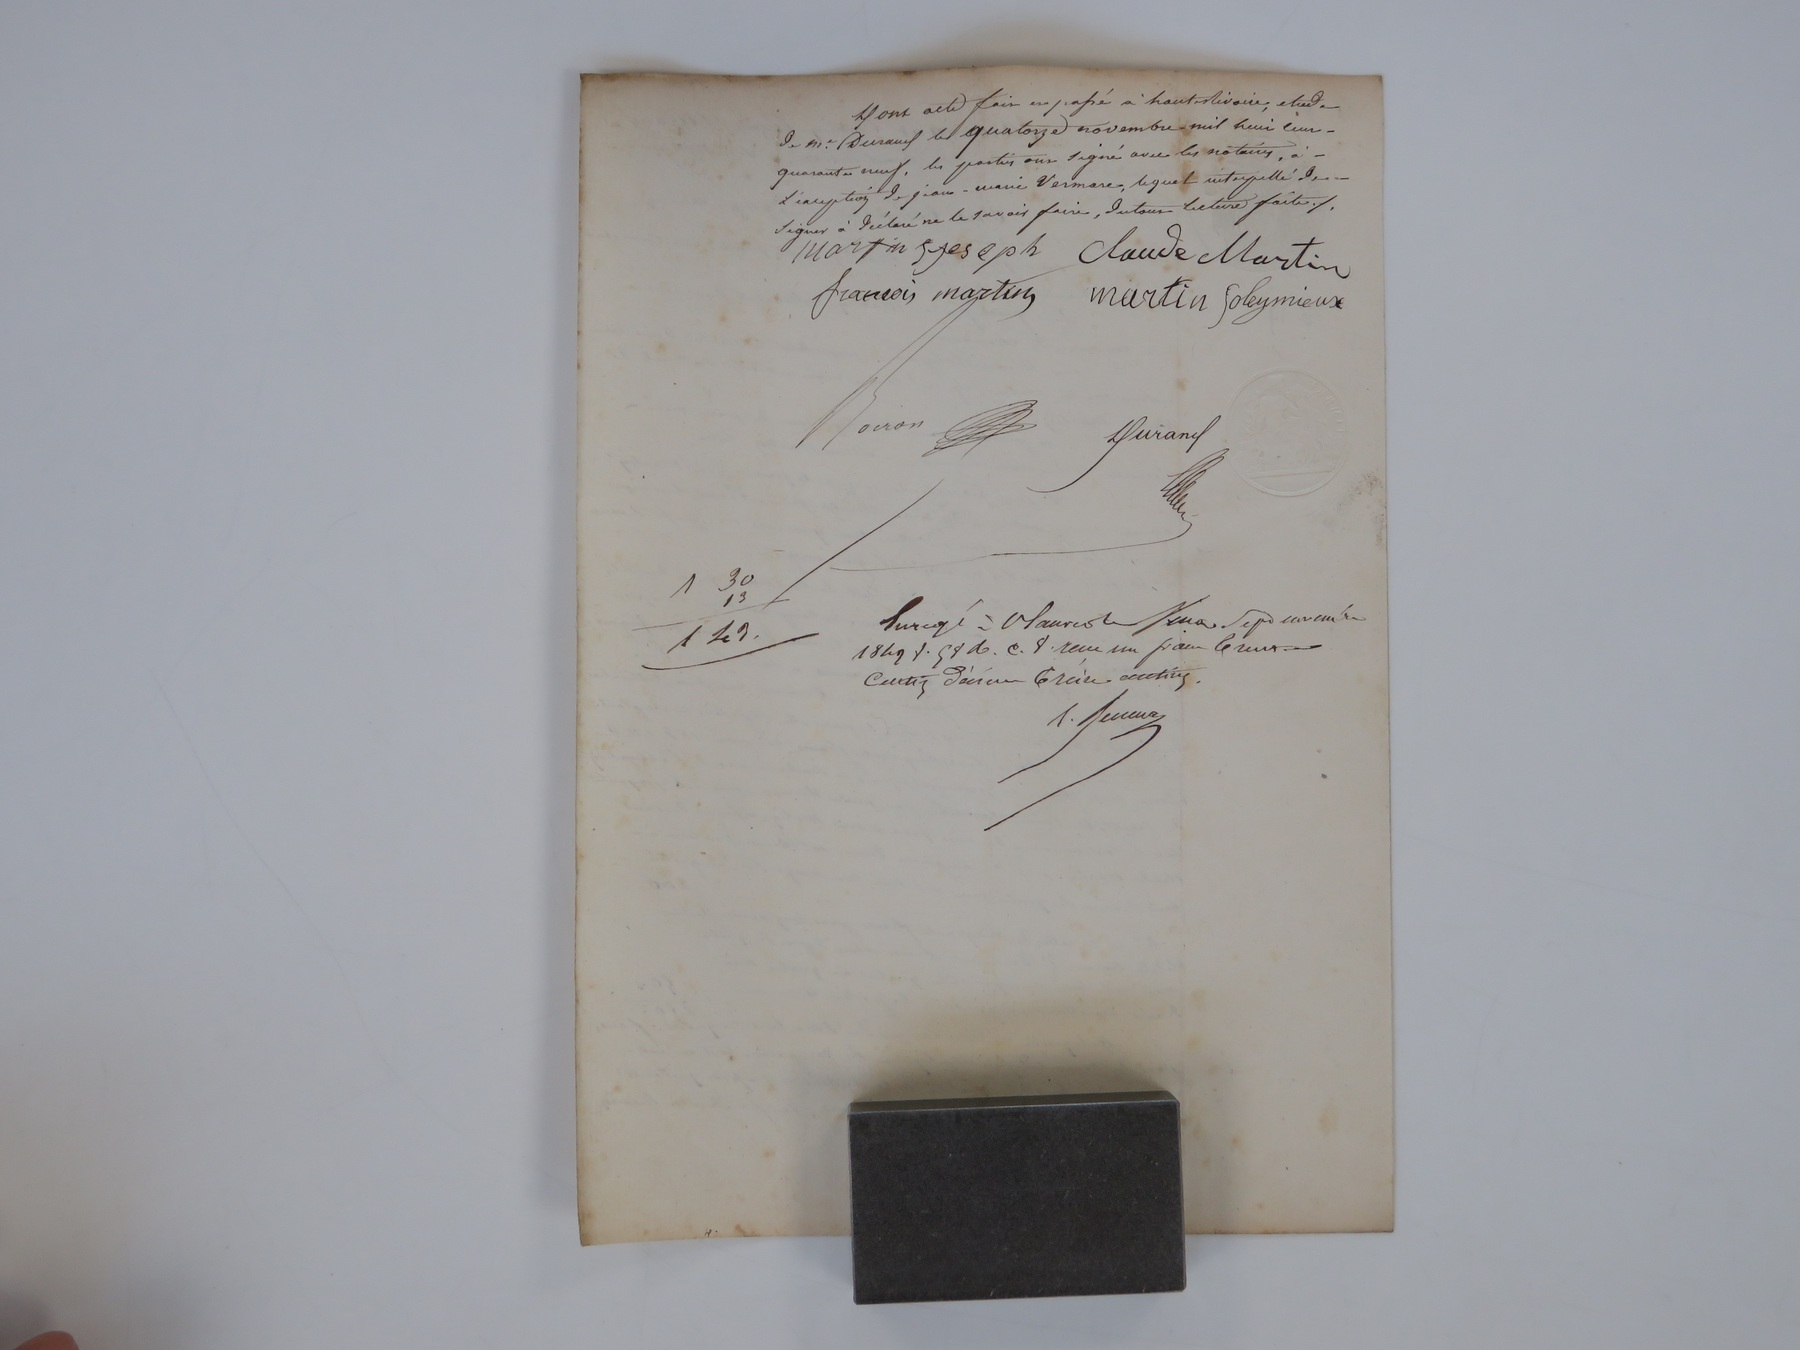 Dont acte fait et passé à haute Rivoire, étude
de me. Durand le quatorze novembre mil huit cent
quarante neuf, les parties ont signé avec les notaires, à
l'exception de jean-marie Vermare, lequel interpellé de
signer à déclaré ne le savoir faire, du tout lecture faite./.
martin joseph Claude Martin
francois martin martin Soleymieux
Boiron Durand
1 30
13
1 43.
Enregé à St Laurent de novembre
1849 f. 58 v. c. 8. reçu un franc trente
centes décime treize centimes.